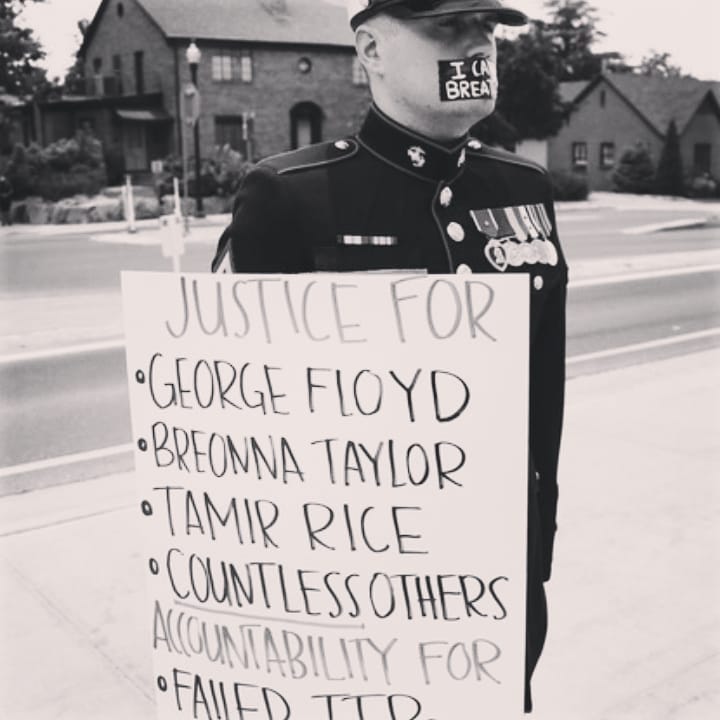 I CA
BREAT
JUSTICE FOR
• GEORGE FLOYD
• BREONNA TAYLOR
• TAMIR RICE
• COUNTLESS OTHERS
ACCOUNTABILITY FOR